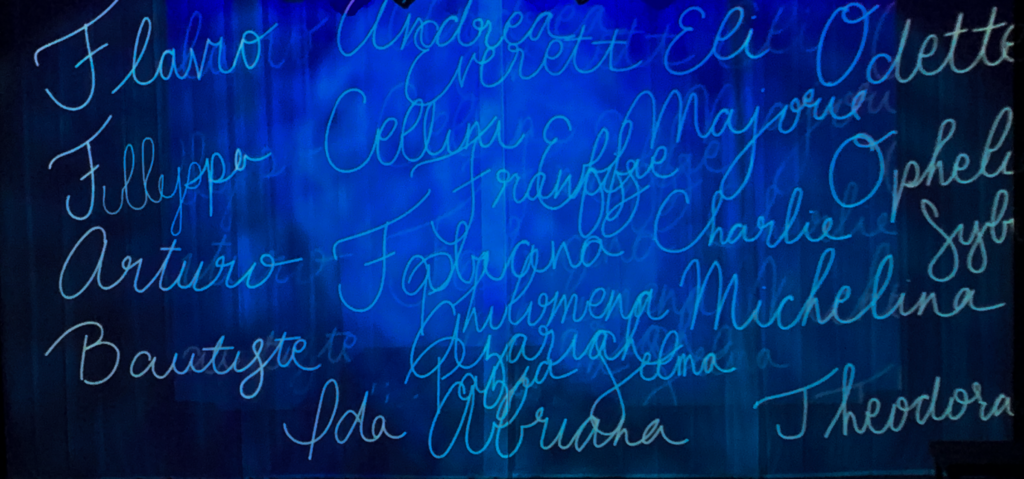 Flavio Andrea
Everett Eli Odette
Cellina Majorie
Fillyppa Opheli
Arturo Fabiana Charlie Syb
Philomena Michelina
Bautiste Selma
Ida Abriana Theodora